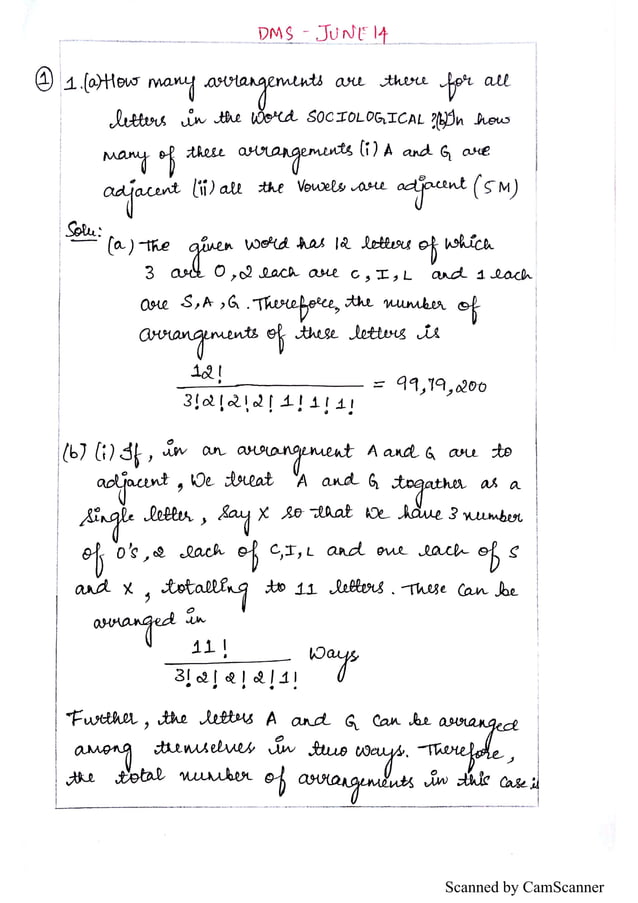 DMS - JUNE 14
① 1.(a) How many arrangements are there for all
letters in the word SOCIOLOGICAL ?(b) In how
many of these arrangements (i) A and G are
adjacent (ii) all the Vowels are adjacent (5M)
Solu:
(a) The given word has 12 letters of which
3 are O, 2 each are C, I, L and 1 each
are S, A, G. Therefore, the number of
arrangements of these letters is
12!
3! 2! 2! 2! 1! 1! 1! = 99,79,200
(b) (i) If, in an arrangement A and G are to
adjacent, We treat A and G togather as a
single letter, say X so that we have 3 number
of O's, 2 each of C, I, L and one each of S
and X, totalling to 11 letters. These can be
arranged in
11!
3! 2! 2! 2! 1! Ways
Further, the letters A and G can be arranged
among themselves in two ways. Therefore,
the total number of arrangements in this case is
Scanned by CamScanner